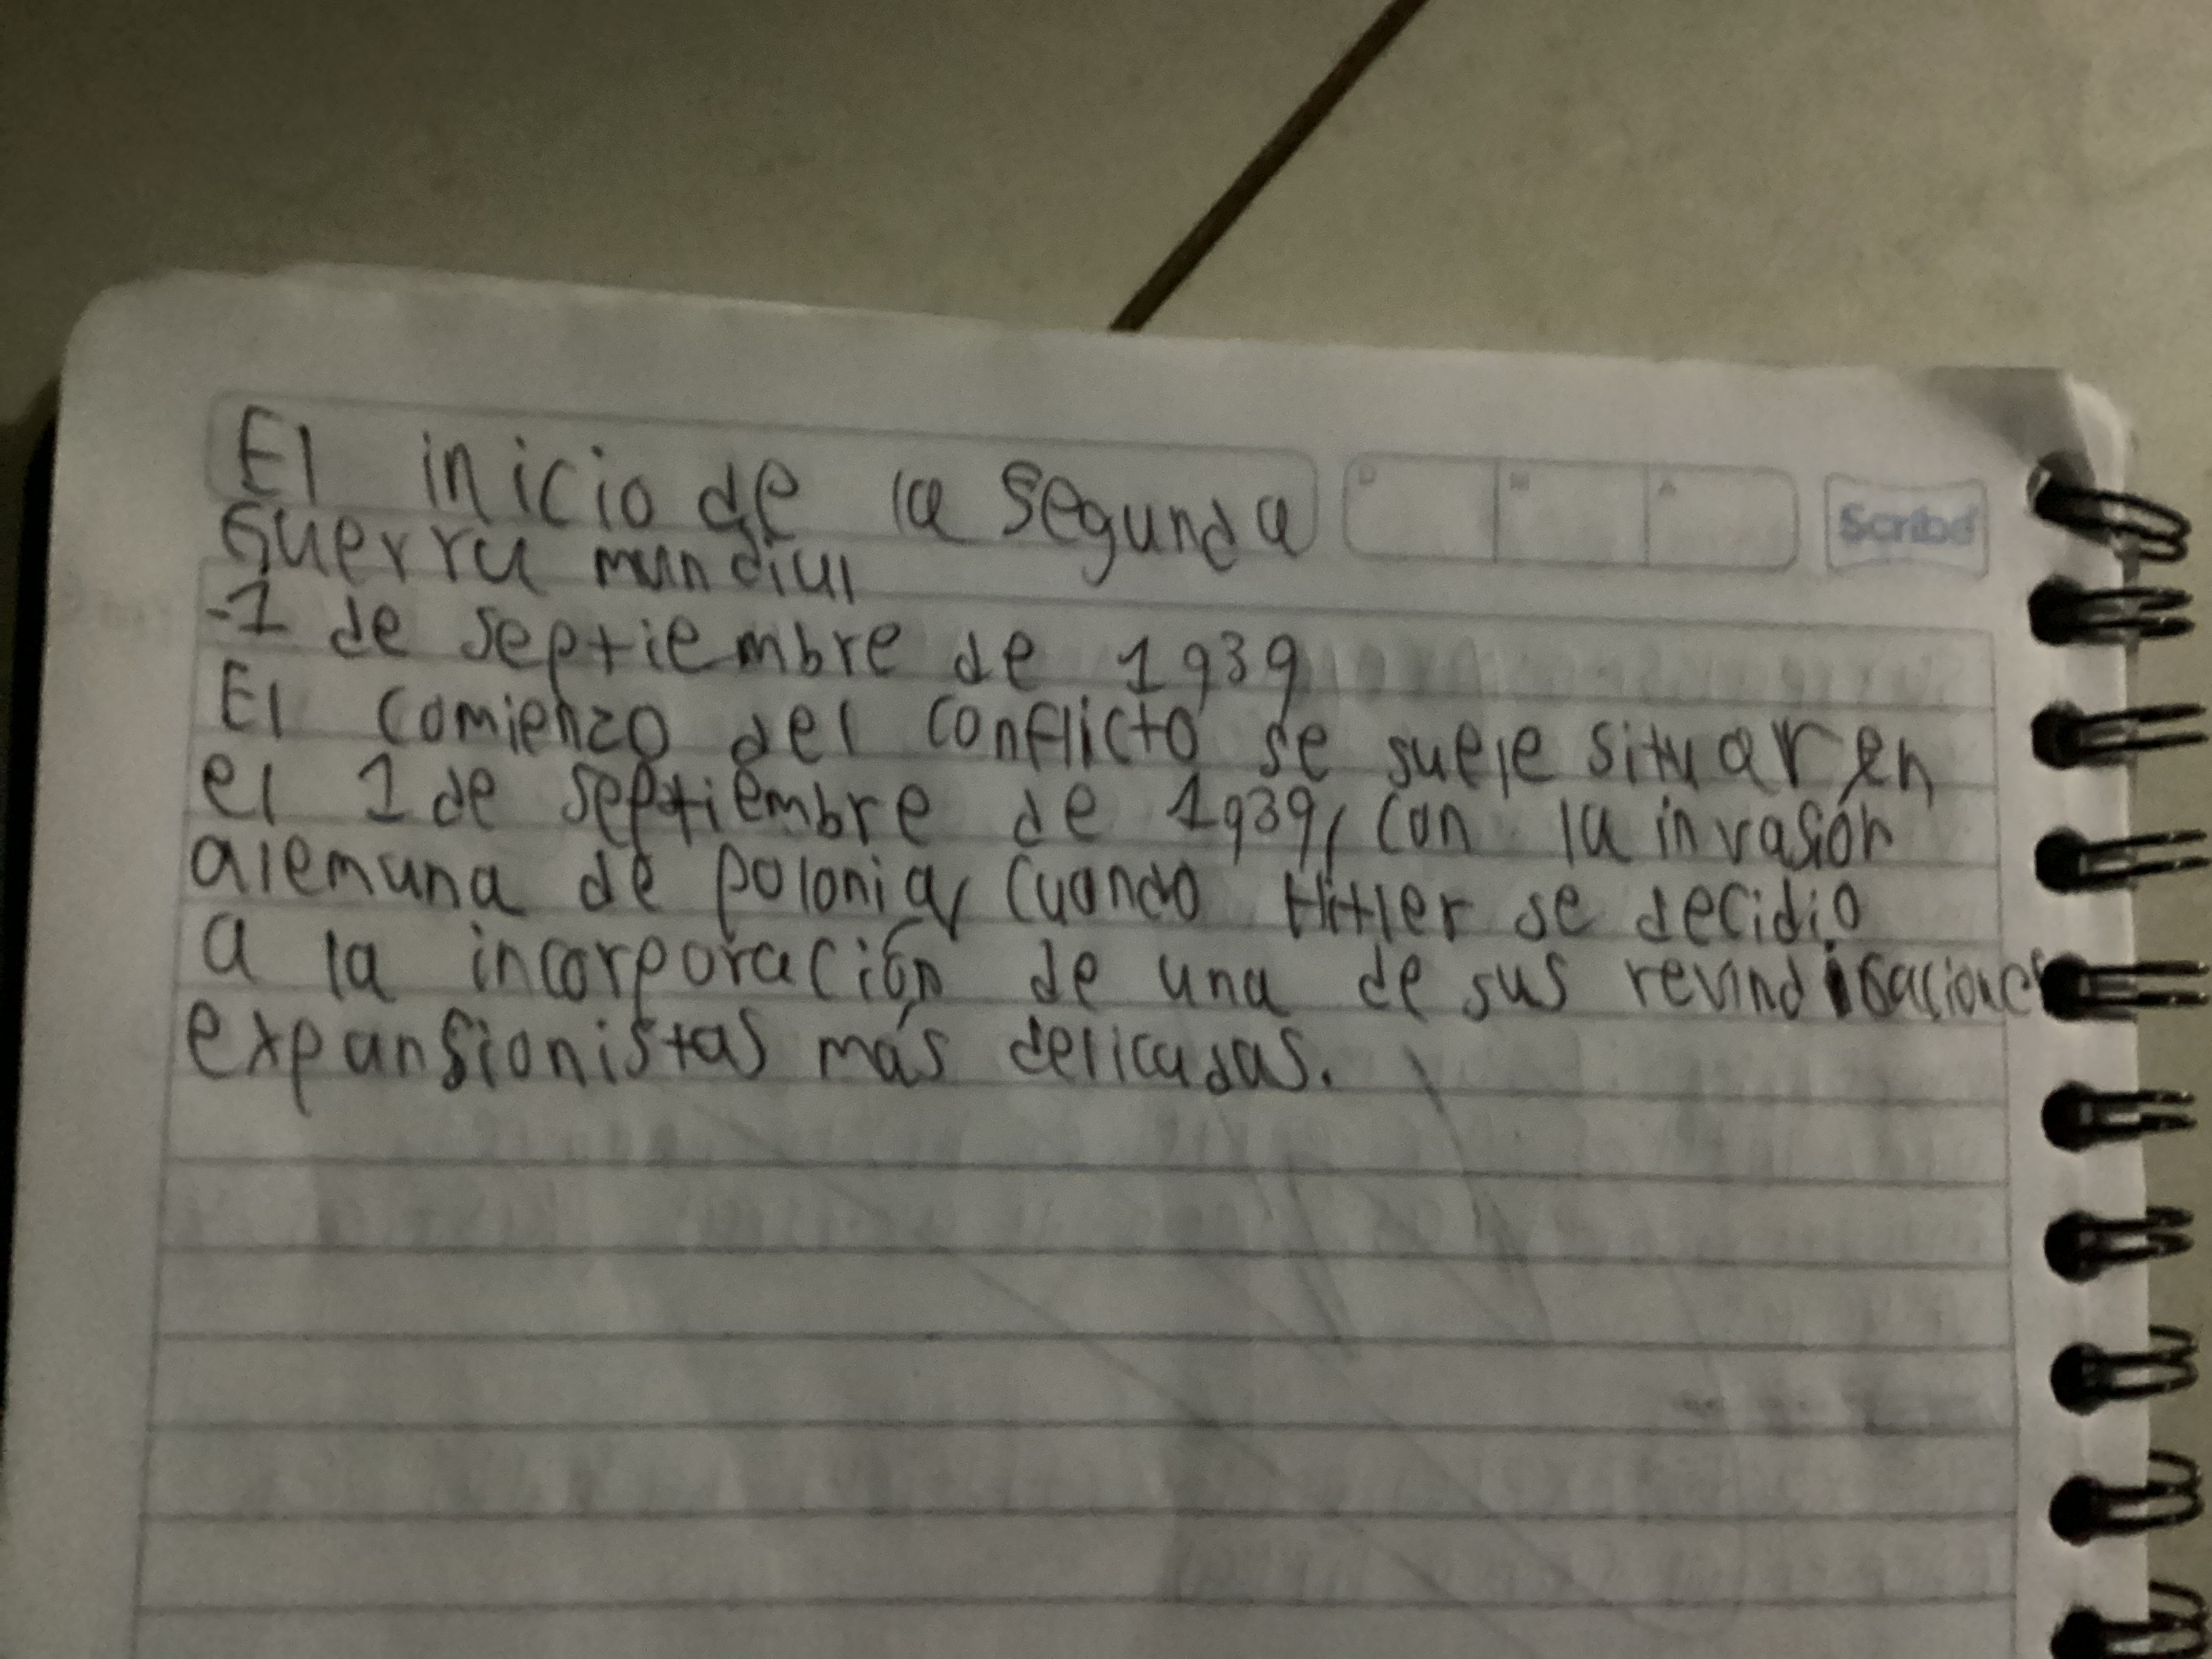 El inicio de la Segunda
Guerra mundial
D M A
Scribe
-1 de septiembre de 1939
El comienzo del conflicto se suele situar en
el 1 de septiembre de 1939, con la invasión
alemana de polonia, cuando Hitler se decidio
a la incorporación de una de sus revindicaciones
expansionistas más delicadas.